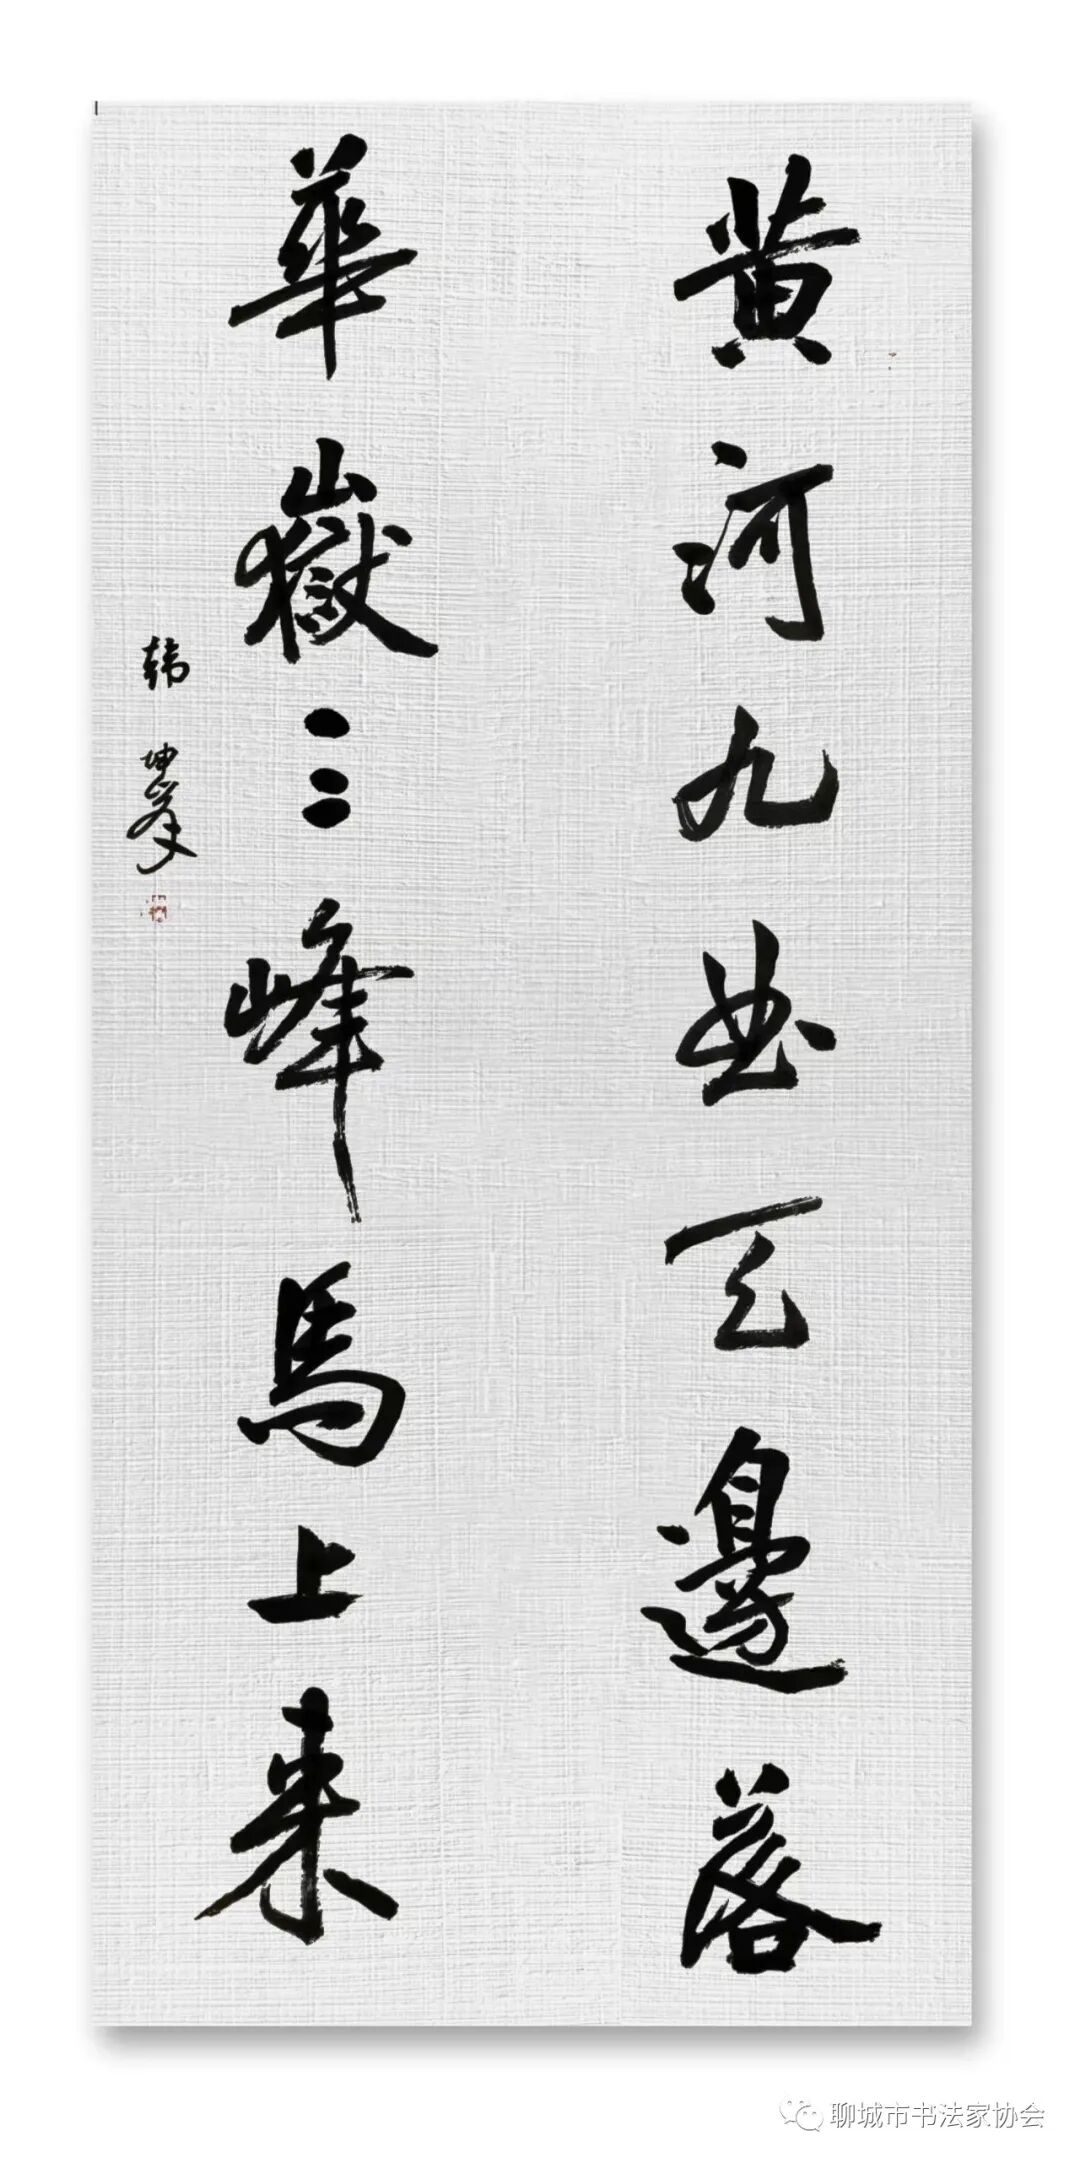 黄河九曲天邊落
華嶽三峰馬上来
韩坤峯
聊城市书法家协会